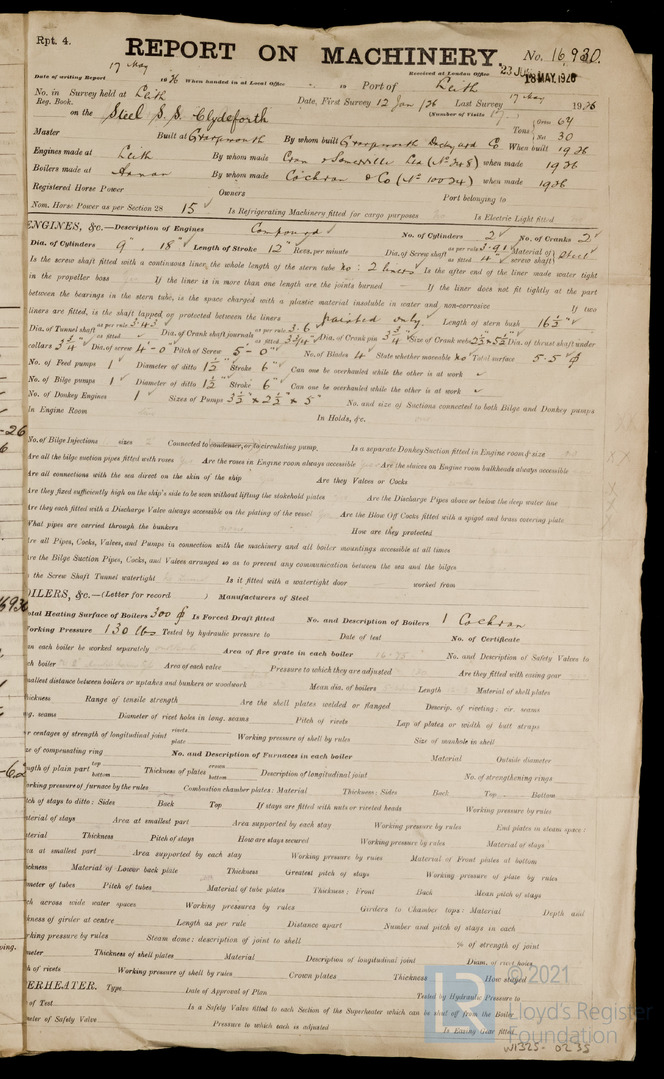 Rpt. 4.
REPORT ON MACHINERY. No. 16,930.
Date of writing Report 17 May 1926 When handed in at Local Office Port of Leith Received at London Office 18 MAY. 1926
No. in Survey held at Leith Date, First Survey 12 Jan /26 Last Survey 17 May 1926
Reg. Book. (Number of Visits 17
on the Steel S.S. Clydeforth Tons Gross 64 Net 30
Master Built at Grangemouth By whom built Grangemouth Dockyard Co When built 1926
Engines made at Leith By whom made Cran & Somerville Ltd (No 348) when made 1926
Boilers made at Annan By whom made Cochran & Co (No 10034) when made 1926
Registered Horse Power Owners Port belonging to
Nom. Horse Power as per Section 28 15 Is Refrigerating Machinery fitted for cargo purposes Is Electric Light fitted
ENGINES, &c.—Description of Engines Compound No. of Cylinders 2 No. of Cranks 2
Dia. of Cylinders 9", 18" Length of Stroke 12" Revs. per minute Dia. of Screw shaft as per rule 3.91 as fitted 4" Material of screw shaft Steel
Is the screw shaft fitted with a continuous liner the whole length of the stern tube No: 2 liners Is the after end of the liner made water tight
in the propeller boss If the liner is in more than one length are the joints burned If the liner does not fit tightly at the part
between the bearings in the stern tube, is the space charged with a plastic material insoluble in water and non-corrosive If two
liners are fitted, is the shaft lapped or protected between the liners painted only Length of stern bush 16½"
Dia. of Tunnel shaft as per rule 3.43 as fitted Dia. of Crank shaft journals as per rule 3.6 as fitted 3¾" Dia. of Crank pin 3¾" Size of Crank webs 2½ x 5½ Dia. of thrust shaft under
collars 3¾" Dia. of screw 4'-0 Pitch of Screw 5'-0" No. of Blades 4 State whether moveable No Total surface 5.5
No. of Feed pumps 1 Diameter of ditto 1½" Stroke 6" Can one be overhauled while the other is at work
No. of Bilge pumps 1 Diameter of ditto 1½" Stroke 6" Can one be overhauled while the other is at work
No. of Donkey Engines 1 Sizes of Pumps 3½" x 2½" x 5" No. and size of Suctions connected to both Bilge and Donkey pumps
In Engine Room In Holds, &c.
No. of Bilge Injections sizes Connected to condenser, or to circulating pump. Is a separate Donkey Suction fitted in Engine room & size
Are all the bilge suction pipes fitted with roses Are the roses in Engine room always accessible Are the sluices on Engine room bulkheads always accessible
Are all connections with the sea direct on the skin of the ship Are they Valves or Cocks
Are they fixed sufficiently high on the ship's side to be seen without lifting the stokehold plates Are the Discharge Pipes above or below the deep water line
Are they each fitted with a Discharge Valve always accessible on the plating of the vessel Are the Blow Off Cocks fitted with a spigot and brass covering plate
What pipes are carried through the bunkers How are they protected
Are all Pipes, Cocks, Valves, and Pumps in connection with the machinery and all boiler mountings accessible at all times
Are the Bilge Suction Pipes, Cocks, and Valves arranged so as to prevent any communication between the sea and the bilges
the Screw Shaft Tunnel watertight Is it fitted with a watertight door worked from
OILERS, &c.—(Letter for record ) Manufacturers of Steel
otal Heating Surface of Boilers 300 Is Forced Draft fitted No. and Description of Boilers 1 Cochran
orking Pressure 130 lbs Tested by hydraulic pressure to Date of test No. of Certificate
an each boiler be worked separately Area of fire grate in each boiler No. and Description of Safety Valves to
ch boiler Area of each valve Pressure to which they are adjusted Are they fitted with easing gear
mallest distance between boilers or uptakes and bunkers or woodwork Mean dia. of boilers Length Material of shell plates
hickness Range of tensile strength Are the shell plates welded or flanged Descrip. of riveting: cir. seams
ng. seams Diameter of rivet holes in long. seams Pitch of rivets Lap of plates or width of butt straps
er centages of strength of longitudinal joint rivets plate Working pressure of shell by rules Size of manhole in shell
ze of compensating ring No. and Description of Furnaces in each boiler Material Outside diameter
ngth of plain part top bottom Thickness of plates crown bottom Description of longitudinal joint No. of strengthening rings
orking pressure of furnace by the rules Combustion chamber plates: Material Thickness: Sides Back Top Bottom
tch of stays to ditto: Sides Back Top If stays are fitted with nuts or riveted heads Working pressure by rules
aterial of stays Area at smallest part Area supported by each stay Working pressure by rules End plates in steam space:
aterial Thickness Pitch of stays How are stays secured Working pressure by rules Material of stays
ea at smallest part Area supported by each stay Working pressure by rules Material of Front plates at bottom
ickness Material of Lower back plate Thickness Greatest pitch of stays Working pressure of plate by rules
ameter of tubes Pitch of tubes Material of tube plates Thickness: Front Back Mean pitch of stays
ch across wide water spaces Working pressures by rules Girders to Chamber tops: Material Depth and
kness of girder at centre Length as per rule Distance apart Number and pitch of stays in each
rking pressure by rules Steam dome: description of joint to shell % of strength of joint
meter Thickness of shell plates Material Description of longitudinal joint Diam. of rivet holes
h of rivets Working pressure of shell by rules Crown plates Thickness How stayed
ERHEATER. Type Date of Approval of Plan Tested by Hydraulic Pressure to
of Test Is a Safety Valve fitted to each Section of the Superheater which can be shut off from the Boiler
meter of Safety Valve Pressure to which each is adjusted Is Easing Gear fitted
© 2021
Lloyd's Register
Foundation
W1325-0235